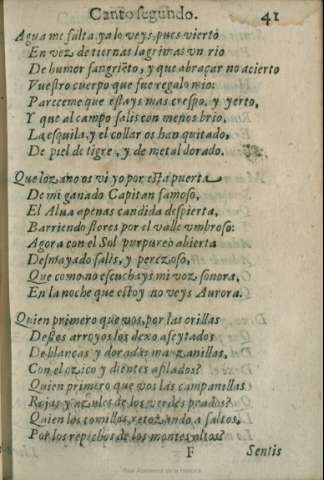 Canto segundo. 41
Agua me falta ya lo veys, pues vierto
En vez de tiernas lagrimas vn rio
De humor sangriẽto, y que abraçar no acierto
Vuestro cuerpo que fue regalo mio:
Pareceme que estays mas crespo, y yerto,
Y que al campo salis con menos brio,
La esquila, y el collar os han quitado,
De piel de tigre, y de metal dorado.
Que loz ano os vi yo por esta puerta
De mi ganado Capitan famoso,
El Alua apenas candida despierta,
Barriendo flores por el valle vmbroso:
Agora con el Sol purpureo abierta
Desmayado salis, y perezoso,
Que como no escuchays mi voz sonora,
En la noche que estoy no veys Aurora.
Quien primero que vos, por las orillas
Destos arroyos los dexo afeytados
De blancas, y doradas manzanillas,
Con el ozico y dientes afilados?
Quien primero que vos las campanillas
Rojas y azules de los verdes prados?
Quien los tomillos, retozando a saltos,
Por los repechos de los montes altos?
F Sentis
Real Academia de la Historia